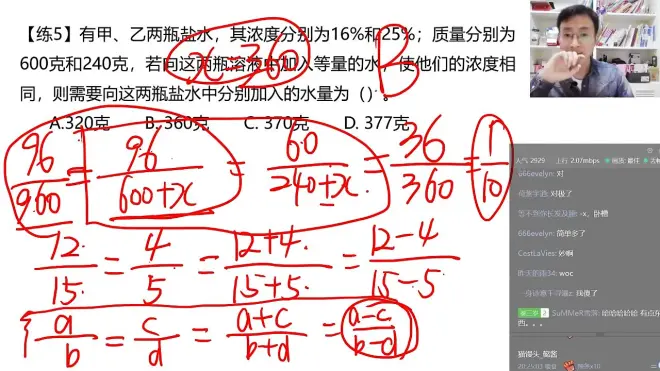 【练5】有甲、乙两瓶盐水，其浓度分别为16%和25%；质量分别为
600克和240克，若向这两瓶溶液中加入等量的水，使他们的浓度相
同，则需要向这两瓶盐水中分别加入的水量为（）。
x=360
B
A.320克 B. 360克 C. 370克 D. 377克
96/960 = 96/(600+x) = 60/(240+x) = 36/360 = 1/10
12/15 = 4/5 = (12+4)/(15+5) = (12-4)/(15-5)
a/b = c/d = (a+c)/(b+d) = (a-c)/(b-d)
人气 2929 上行 2.07mbps
666evelyn: 对
对极了
-x，卧槽
666evelyn: 简单多了
CestLaVies: 妙啊
woc
SuMMeR
哈哈哈哈哈
西。。。